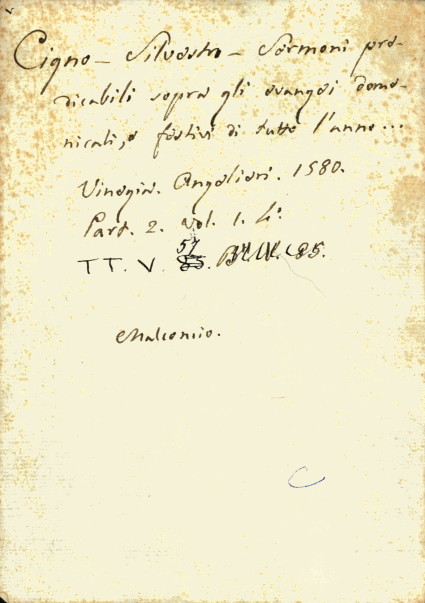 Cigno - Silvestro - Sermoni pre-
dicabili sopra gli evangei dome-
nicali, e festivi di tutto l'anno...
Vinegia. Angelieri. 1580.
Part. 2. vol. 1. 4°.
57
TT. V.
Malconcio.
C